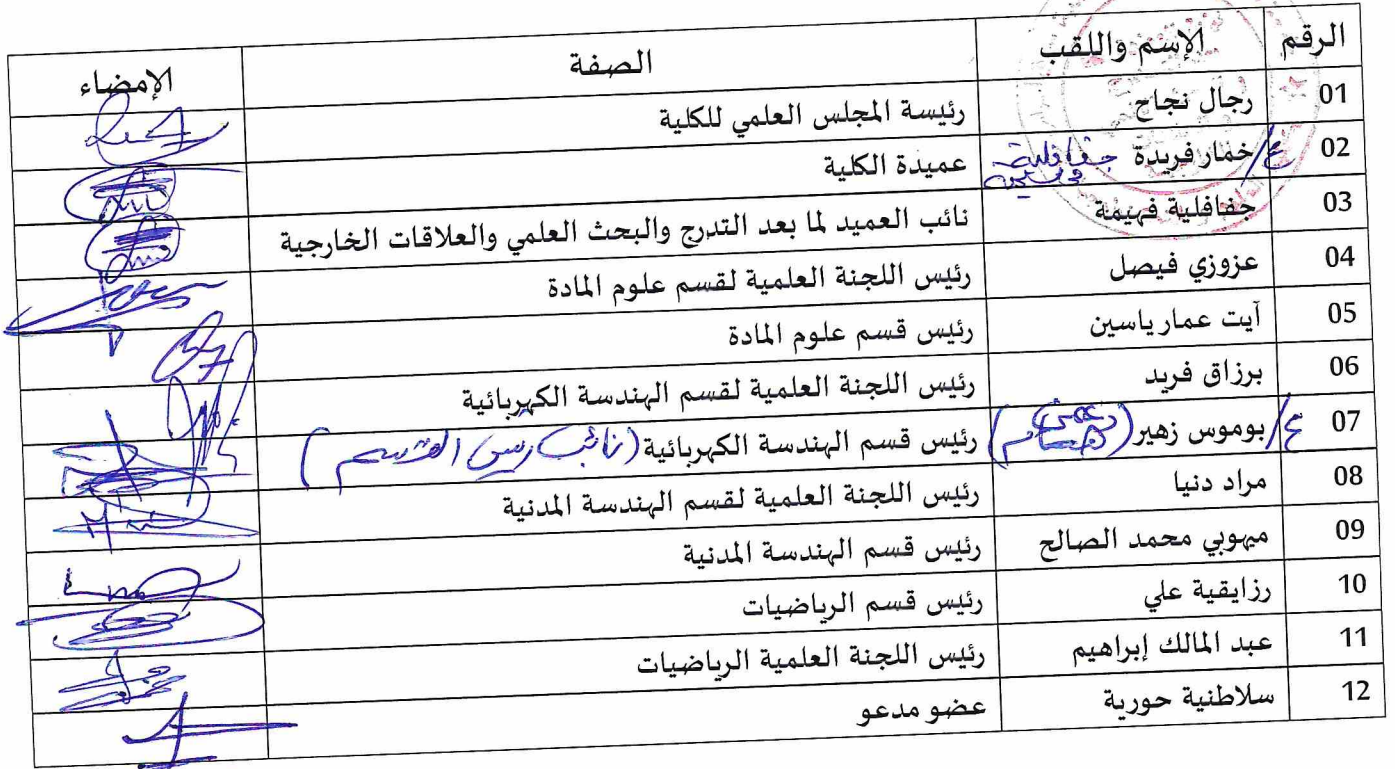 الرقم الإسم واللقب الصفة الإمضاء
01 رجال نجاح رئيسة المجلس العلمي للكلية
02 ع/خمار فريدة حفافلية فهيمة عميدة الكلية
03 حفافلية فهيمة نائب العميد لما بعد التدرج والبحث العلمي والعلاقات الخارجية
04 عزوزي فيصل رئيس اللجنة العلمية لقسم علوم المادة
05 آيت عمار ياسين رئيس قسم علوم المادة
06 برزاق فريد رئيس اللجنة العلمية لقسم الهندسة الكهربائية
07 ع/بوموس زهير رئيس قسم الهندسة الكهربائية (نائب رئيس القسم)
08 مراد دنيا رئيس اللجنة العلمية لقسم الهندسة المدنية
09 ميهوبي محمد الصالح رئيس قسم الهندسة المدنية
10 رزايقية علي رئيس قسم الرياضيات
11 عبد المالك إبراهيم رئيس اللجنة العلمية الرياضيات
12 سلاطنية حورية عضو مدعو